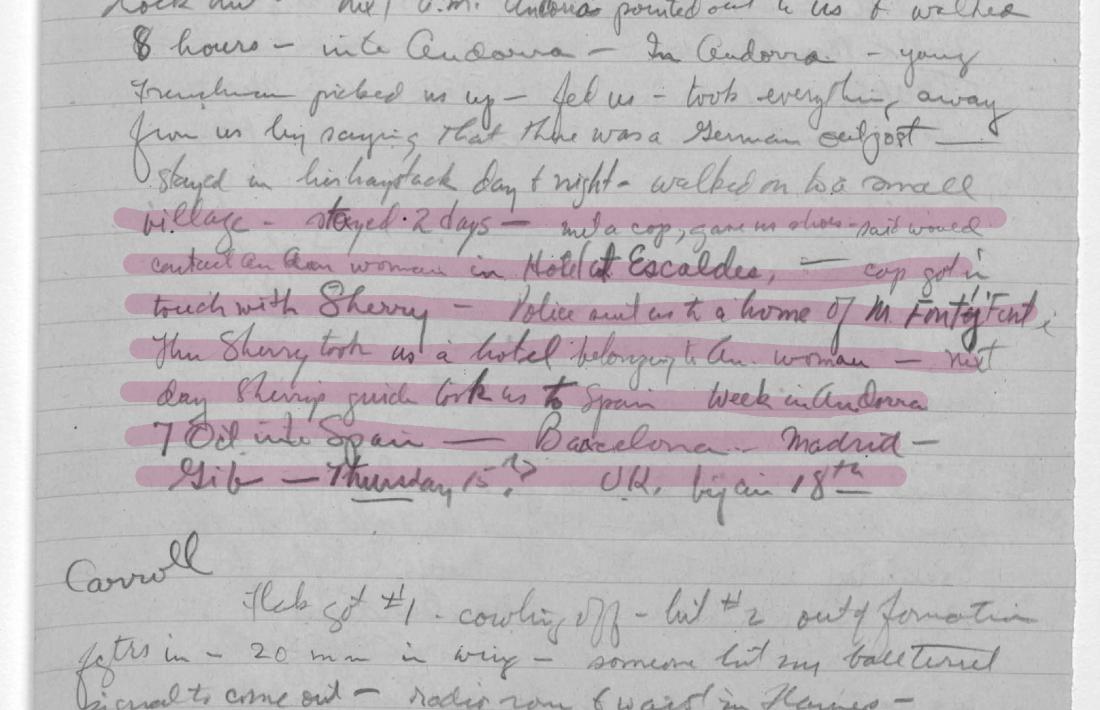 next a.m. Andorra pointed out to us & walked
8 hours - into Andorra - In Andorra - young
Frenchman picked us up - fed us - took everything away
from us by saying that there was a German outpost —
stayed in his haystack day & night - walked on to a small
village - stayed 2 days - met a cop, gave us shoes - said would
contact an Am woman in Hotel at Escaldes, — cop got in
touch with Sherry - Police sent us to a home of M.
Then Sherry took us a hotel belonging to Am. woman — next
day Sherry's guide took us to Spain Week in Andorra
7 Oct into Spain — Barcelona - Madrid -
Gib — Thursday 15? UK. by air 18th
Carroll
Flak got #1 - cowling off - hit #2 out of formation
fgtrs in - 20 mm in wing - someone hit my ball turret
signal to come out - radio room & waist in flames -